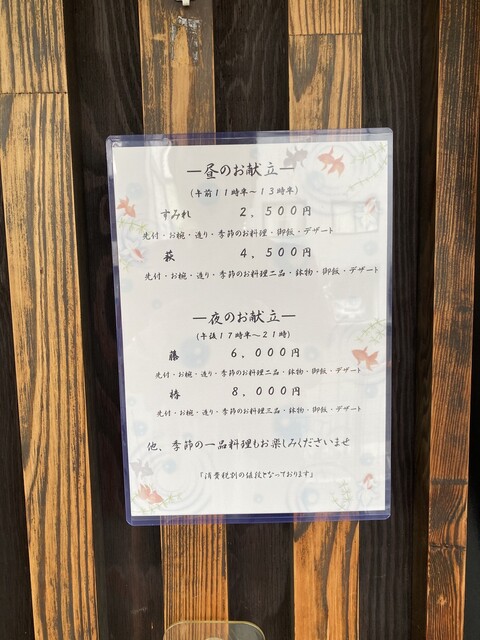 ―昼のお献立―
(午前11時半~13時半)
すみれ 2,500円
先付・お椀・造り・季節のお料理・御飯・デザート
萩 4,500円
先付・お椀・造り・季節のお料理二品・鉢物・御飯・デザート
―夜のお献立―
(午後17時半~21時)
藤 6,000円
先付・お椀・造り・季節のお料理二品・鉢物・御飯・デザート
椿 8,000円
先付・お椀・造り・季節のお料理三品・鉢物・御飯・デザート
他、季節の一品料理もお楽しみくださいませ
「消費税別の値段となっております」